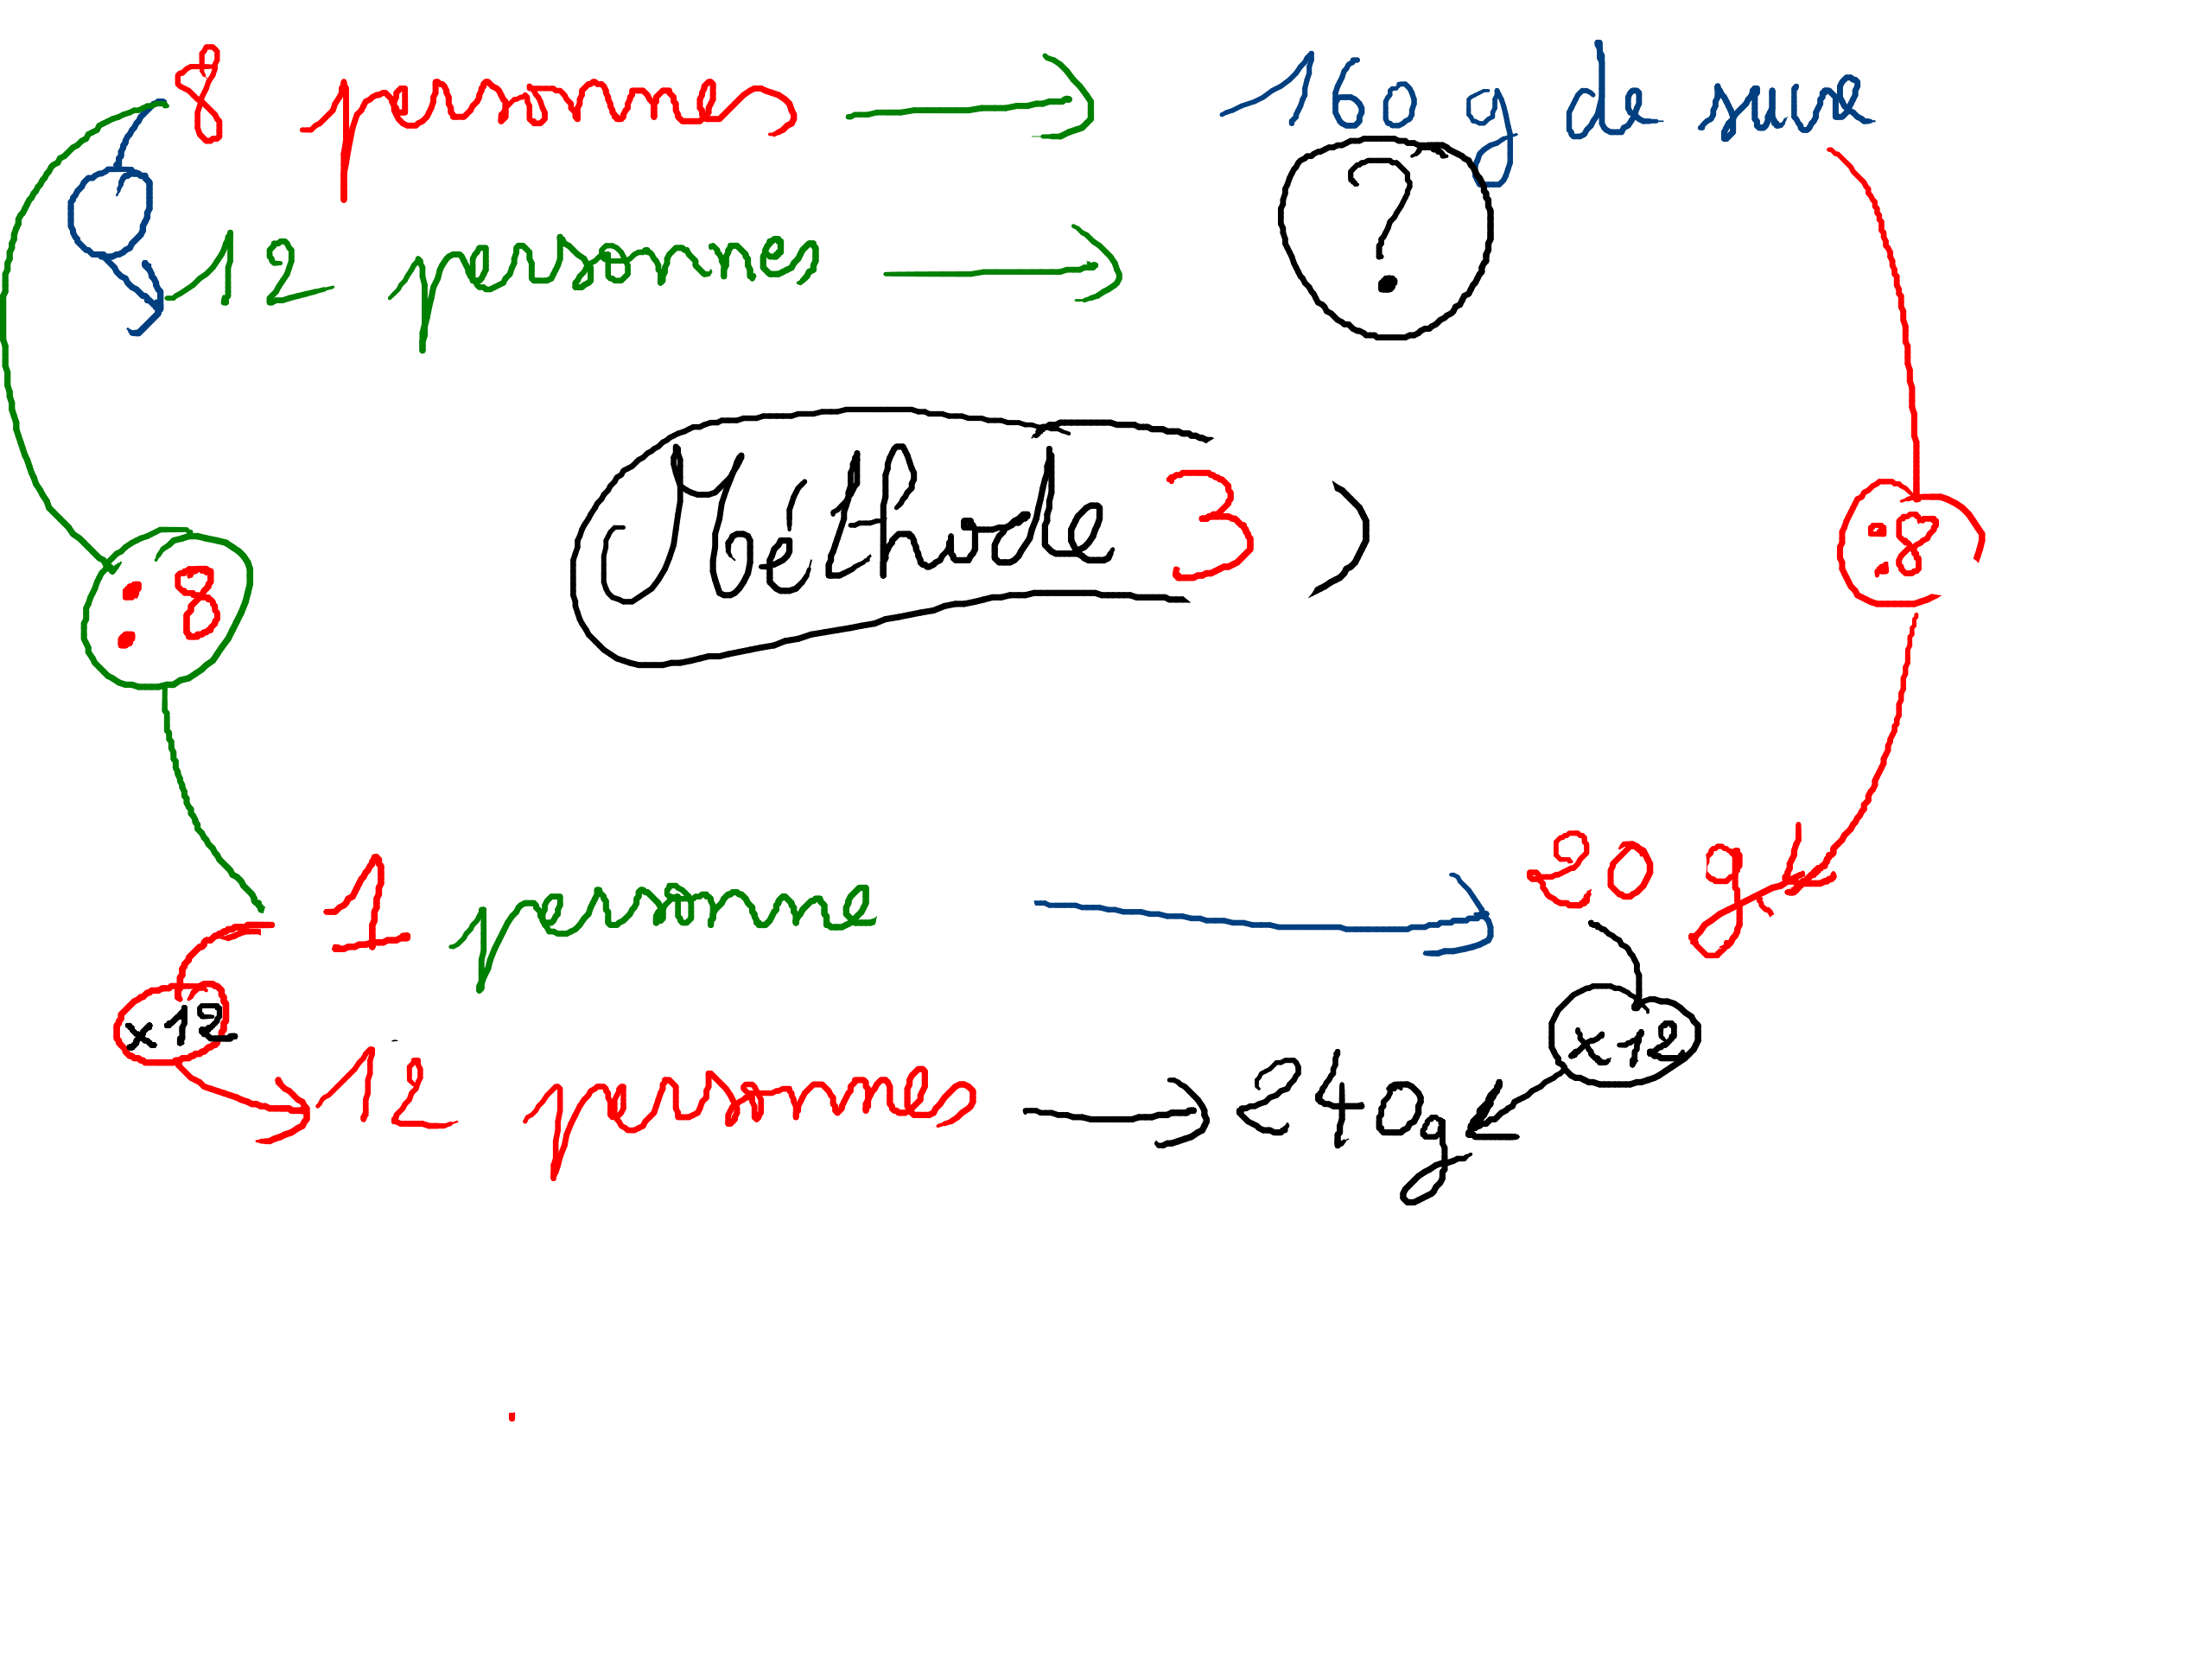 8 personnes → 160 g de sucre
12 personnes → ?
Méthode 3
: 8 : 8
1 personne → 20 g
x 12 x 12
12 personnes → 240 g